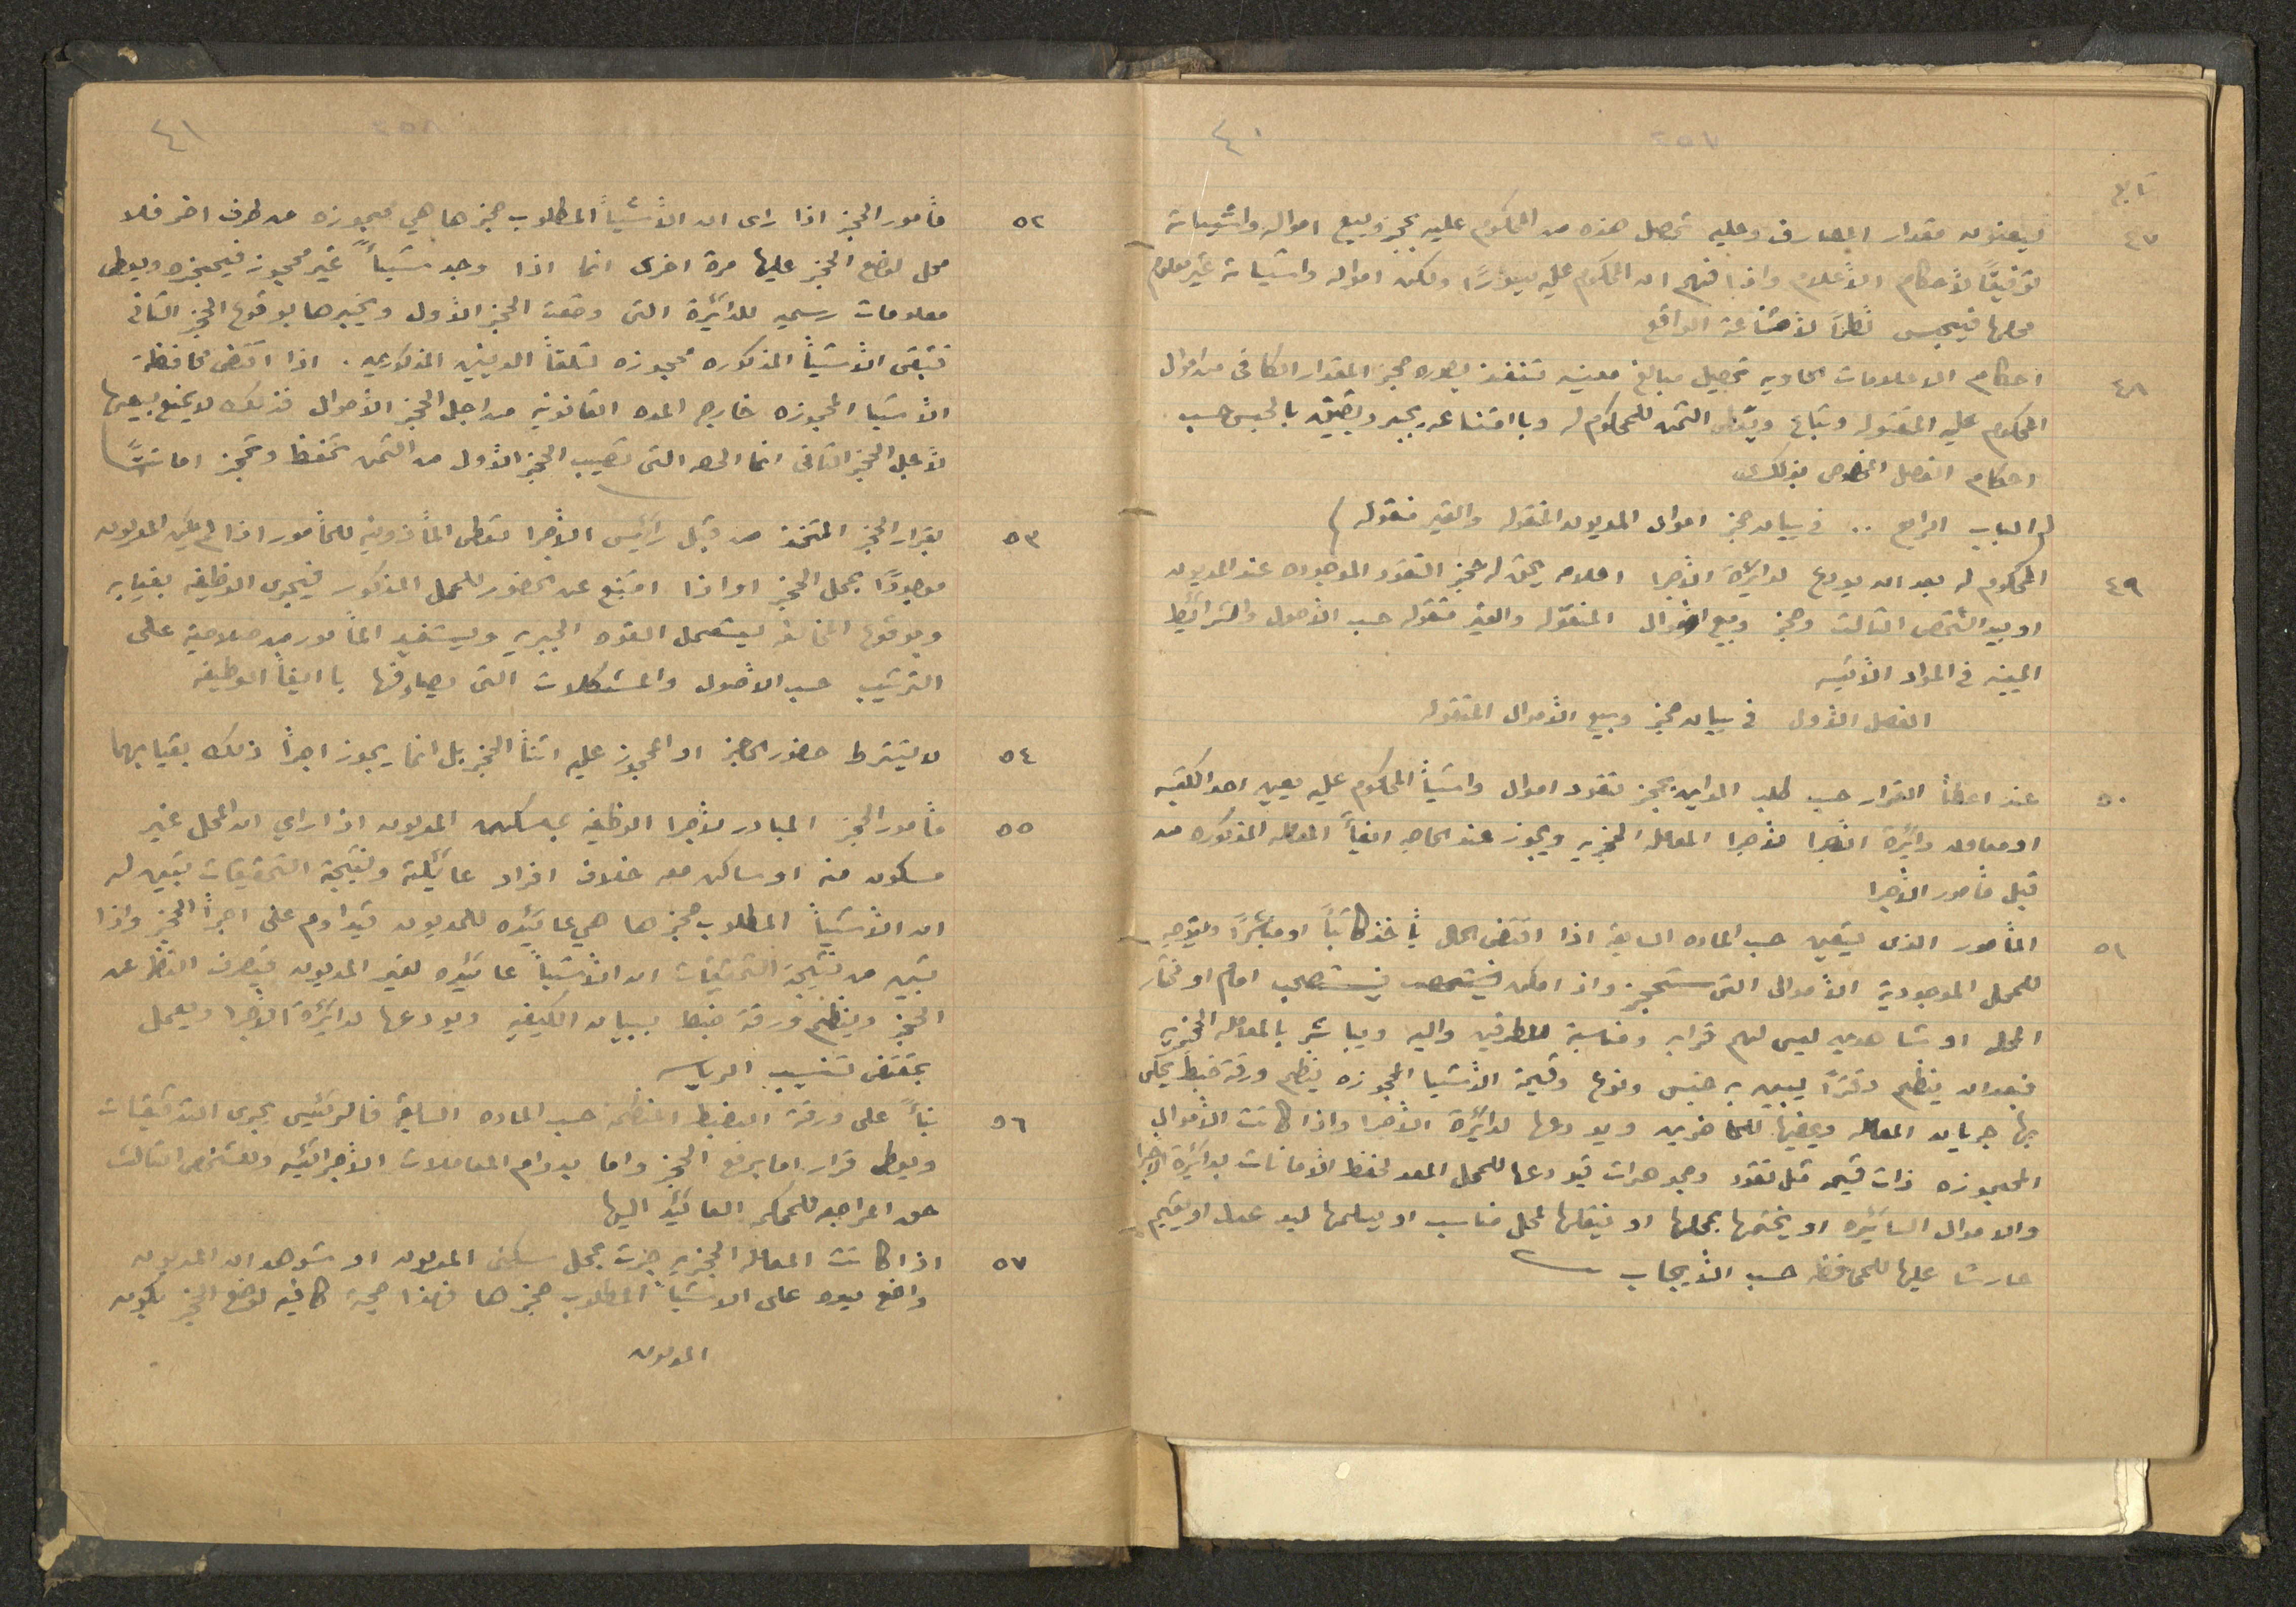 ٤٠
تابع
٤٧
ليعنونه مقدار المصارف وعليه تحصل هذه من المحكوم عليه بحجز وبيع امواله واشيائه
توفيقاً لأحكام الأعلام واذا فهم ان المحكوم عليه ولكن امواله واشيائه غير معلوم
محلها فيحبس نظراً لأمتناعه الواقع
٤٨
احكام الاعلامات الحاويه تحصيل مبالغ معينه تنفذ بصوره حجز المقدار الكافي من اموال
المحكوم عليه المنقوله وتباع ويعطى الثمن للمحكوم له وبامتناعه يجبر ويضيق بالحبس حسب
احكام الفصل المخصوص بذلك
( الباب الرابع .. في بيان حجز اموال المديون المنقوله والغير منقوله )
٤٩
المحكوم له بعد ان يودع لدائرة الأجرا اعلامه يحق له حجز النقود الموجوده عند المديون
او بيد الشخص الثالث وحجز وبيع اموال المنقوله والغير منقوله حسب الأصول والشرائط
المبينه في المواد الأتيه
الفصل الأول في بيان حجز وبيع الأموال المنقوله
٥٠
عند اعطأ القرار حسب طلب الداين بحجز نقود اموال واشيأ المحكوم عليه يعين احد الكتبه
او معاون دائرة الأجرا لأجرا المعامله الحجزيه ويجوز عند الحاجه ايفأ المعامله المذكوره من
قبل مأمور الأجرا
٥١
المأمور الذي يتعين حسب الماده السابقه اذا اقتضى الحال يأخذ كاتباً او مباشراً ويتوجه
للمحل الموجودية الأموال التي ستحجز واذا امكن فيستصحب امام او مختار
المحل او شاهدين ليس لهم قرابه ومناسبة للطرفين واليه ويباشر بالمعامله الحجزيه
فبعد ان ينظم دفتراً يبين به جنس ونوع وقيمة الأشيا المحجوزه ينظم ورقة ضبط يحكى
بها جريان المعامله ويمضيها للحاضرين ويودعها لدائرة الأجرا واذا كانت الأموال
المحجوزه ذات قيمه مثل نقود ومجوهرات تودعها للمحل المعد لحفظ الأمانات بدائرة الأجرا
والاموال السائره او يختمها بمحلها او ينقلها لمحل مناسب او يسلمها ليد عدل او يقيم
حارسا عليها للمحافظه حسب الأيجاب
٤١
٥٢
مأمور الحجز اذا راى ان الأشيأ المطلوب حجزها هي محجوزه من طرف اخر فلا
محل لوضع الحجز عليها مرة اخرى انما اذا وجد شيأً غير محجوز فيحجزه ويعطى
معلومات رسميه للدائرة التي وضعت الحجز الأول ويخبرها بوقوع الحجز الثاني
فتبقى الأشيأ المذكوره محجوزه لتلقأ الدينين المذكورين . اذا اقتضى محافظة
الأشيا المحجوزه خارج المده القانونية من اجل الحجز الأموال فذلك لا يمنع بيعها
لأجل الحجز الثاني انما الحصه التي تصيب الحجز الأول من الثمن تحفظ وتحجز امانتاً
٥٣
بقرار الحجز المتخذ من قبل رائيس الأجرا تعطى المأذونية للمأمور اذا لم يكن المديون
موجوداً بمحل الحجز او اذا امتنع عن الحضور للمحل المذكور فيجرى الوظيفه بغيابه
وبوقوع المخالفه ليستعمل القوه الجبريه ويستفيد المأمور من صلاحية على
الترتيب حسب الأصول والمشكلات التي يصادفها باايفأ الوظيفه
٥٤
لا يشترط حضور الحاجز او المحجوز عليه اثنأ الحجز بل انما يجوز اجرأ ذلك بغيابهما
٥٥
مأمور الحجز المبادر لأجرا الوظيفه بمسكن المديون اذا راى ان المحل غير
مسكون منه او ساكن معه خلاف افراد عائيلته ونتيجة التحقيقات تبين له
ان الأشيأ المطلوب حجزها هي عائيده للمديون تداوم على اجرأ الحجز واذا
تبين من نتيجة التحقيقات ان الأشيأ عائيده لغير المديون فيصرف النظر عن
الحجز وينظم ورقة ضبط ببيان الكيفيه ويودعها لدائرة الأجرا ويعمل
بمقتضى تنسيب الرياسه
٥٦
بنأً على ورقة الضبط المنظمه حسب الماده السابقه فالرئيس يجرى التدقيقات
ويعطى قرار اما برفع الحجز واما بدوام المعاملات الأجرائيه وللشخص الثالث
حق المراجعه للمحكمه العائيد اليها
٥٧
اذا كانت المعامله الحجزيه جرت بمحل سكنى المديون او شوهد ان المديون
واضع يده على الاشيأ المطلوب حجزها فهذا حجة كافيه لوضع الحجز بكون
المديون